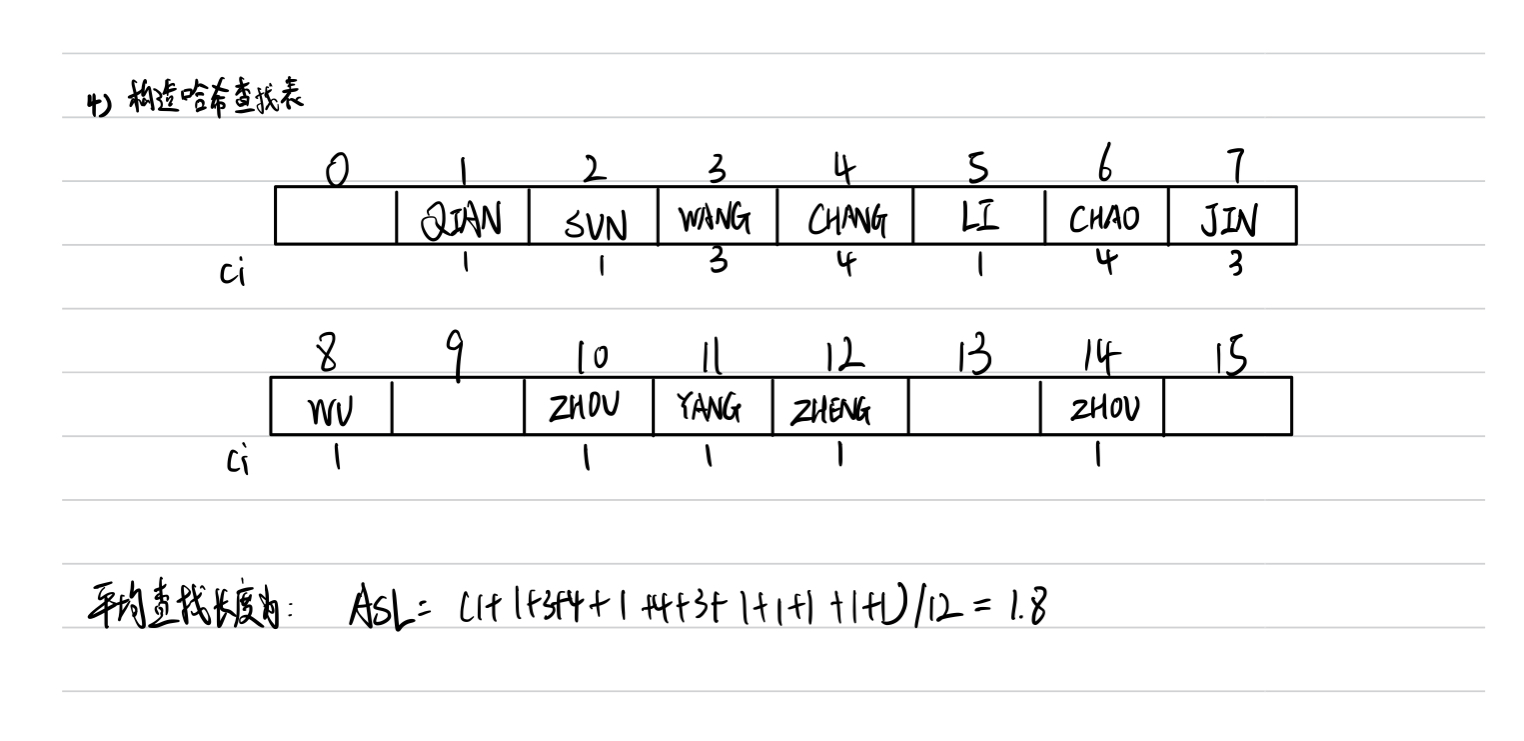 4) 构造哈希查找表
0 1 2 3 4 5 6 7
QIAN SUN WANG CHANG LI CHAO JIN
Ci 1 1 3 4 1 4 3
8 9 10 11 12 13 14 15
WU ZHOU YANG ZHENG ZHOU
Ci 1 1 1 1 1
平均查找长度为: ASL= (1+1+3+4+1+4+3+1+1+1+1+1)/12=1.8